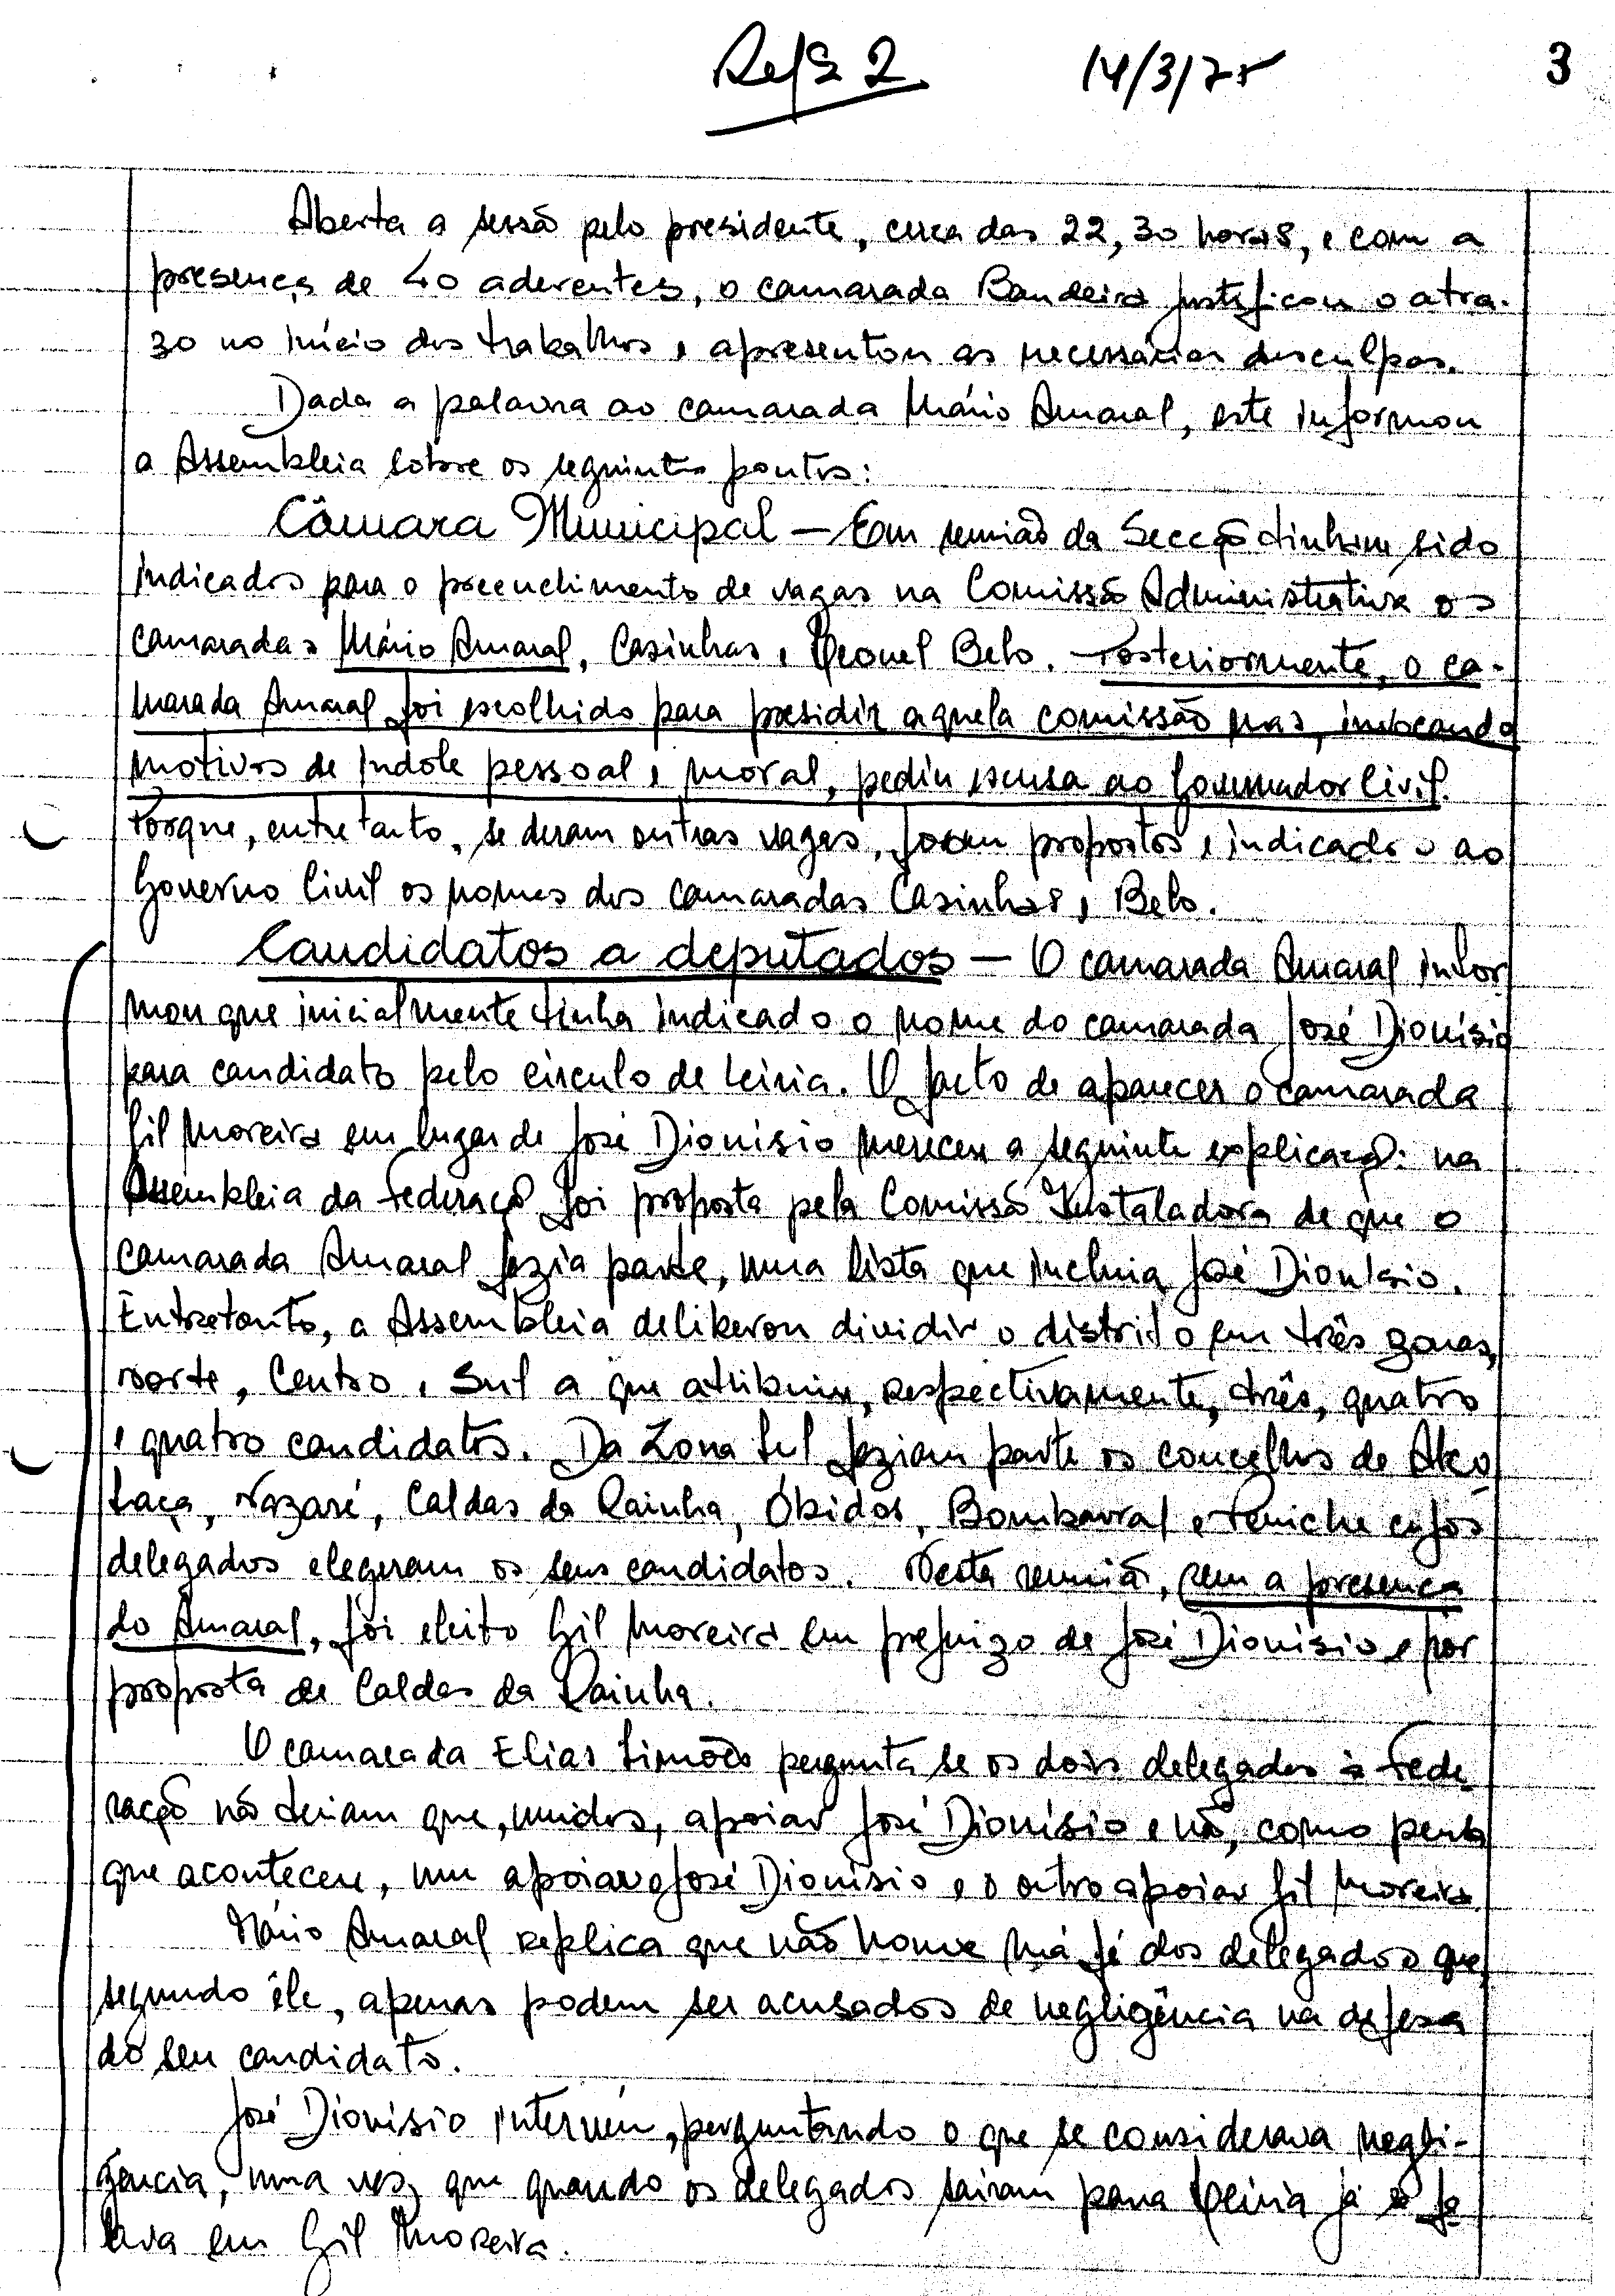 Refª 2 14/3/75 3
Aberta a sessão pelo presidente, cerca das 22,30 horas, e com a
presença de 40 aderentes, o camarada Bandeira justificou o atra-
zo no início dos trabalhos e apresentou as necessárias desculpas.
Dada a palavra ao camarada Mário Amaral, este informou
a Assembleia sobre os seguintes pontos:
Câmara Municipal — Em reunião da Secção tinham sido
indicados para o preenchimento de vagas na Comissão Administrativa os
camaradas Mário Amaral, Casinhas e Leonel Belo. Posteriormente, o ca-
marada Amaral foi escolhido para presidir aquela comissão mas, invocando
motivos de índole pessoal e moral, pediu escusa ao Governador Civil.
Porque, entretanto, se deram outras vagas, foram propostos e indicados ao
Governo Civil os nomes dos camaradas Casinhas e Belo.
Candidatos a deputados — O camarada Amaral infor
mou que inicialmente tinha indicado o nome do camarada José Dionísio
para candidato pelo círculo de Leiria. O facto de aparecer o camarada
Gil Moreira em lugar de José Dionísio mereceu a seguinte explicação: na
Assembleia da Federação foi proposta pela Comissão Instaladora de que o
camarada Amaral fazia parte, uma lista que incluia José Dionísio.
Entretanto, a Assembleia deliberou dividir o distrito em três zonas,
norte, Centro e Sul a que atribuiu, respectivamente, três, quatro
e quatro candidatos. Da Zona Sul faziam parte os concelhos de Alco
baça, Nazaré, Caldas da Rainha, Óbidos, Bombarral e Peniche cujos
delegados elegeram os seus candidatos. Nesta reunião, sem a presença
do Amaral, foi eleito Gil Moreira em prejuizo de José Dionísio e por
proposta de Caldas da Rainha.
O camarada Elias Simões pergunta se os dois delegados à Fede
ração não teriam que, unidos, apoiar José Dionísio e não, como pensa
que aconteceu, um apoiar José Dionísio e o outro apoiar Gil Moreira.
Mário Amaral replica que não houve má fé dos delegados que,
segundo êle, apenas podem ser acusados de negligência na defesa
do seu candidato.
José Dionísio intervém, perguntando o que se considerava negli-
gência, uma vez que quando os delegados sairam para Leiria já se fa
lava em Gil Moreira.